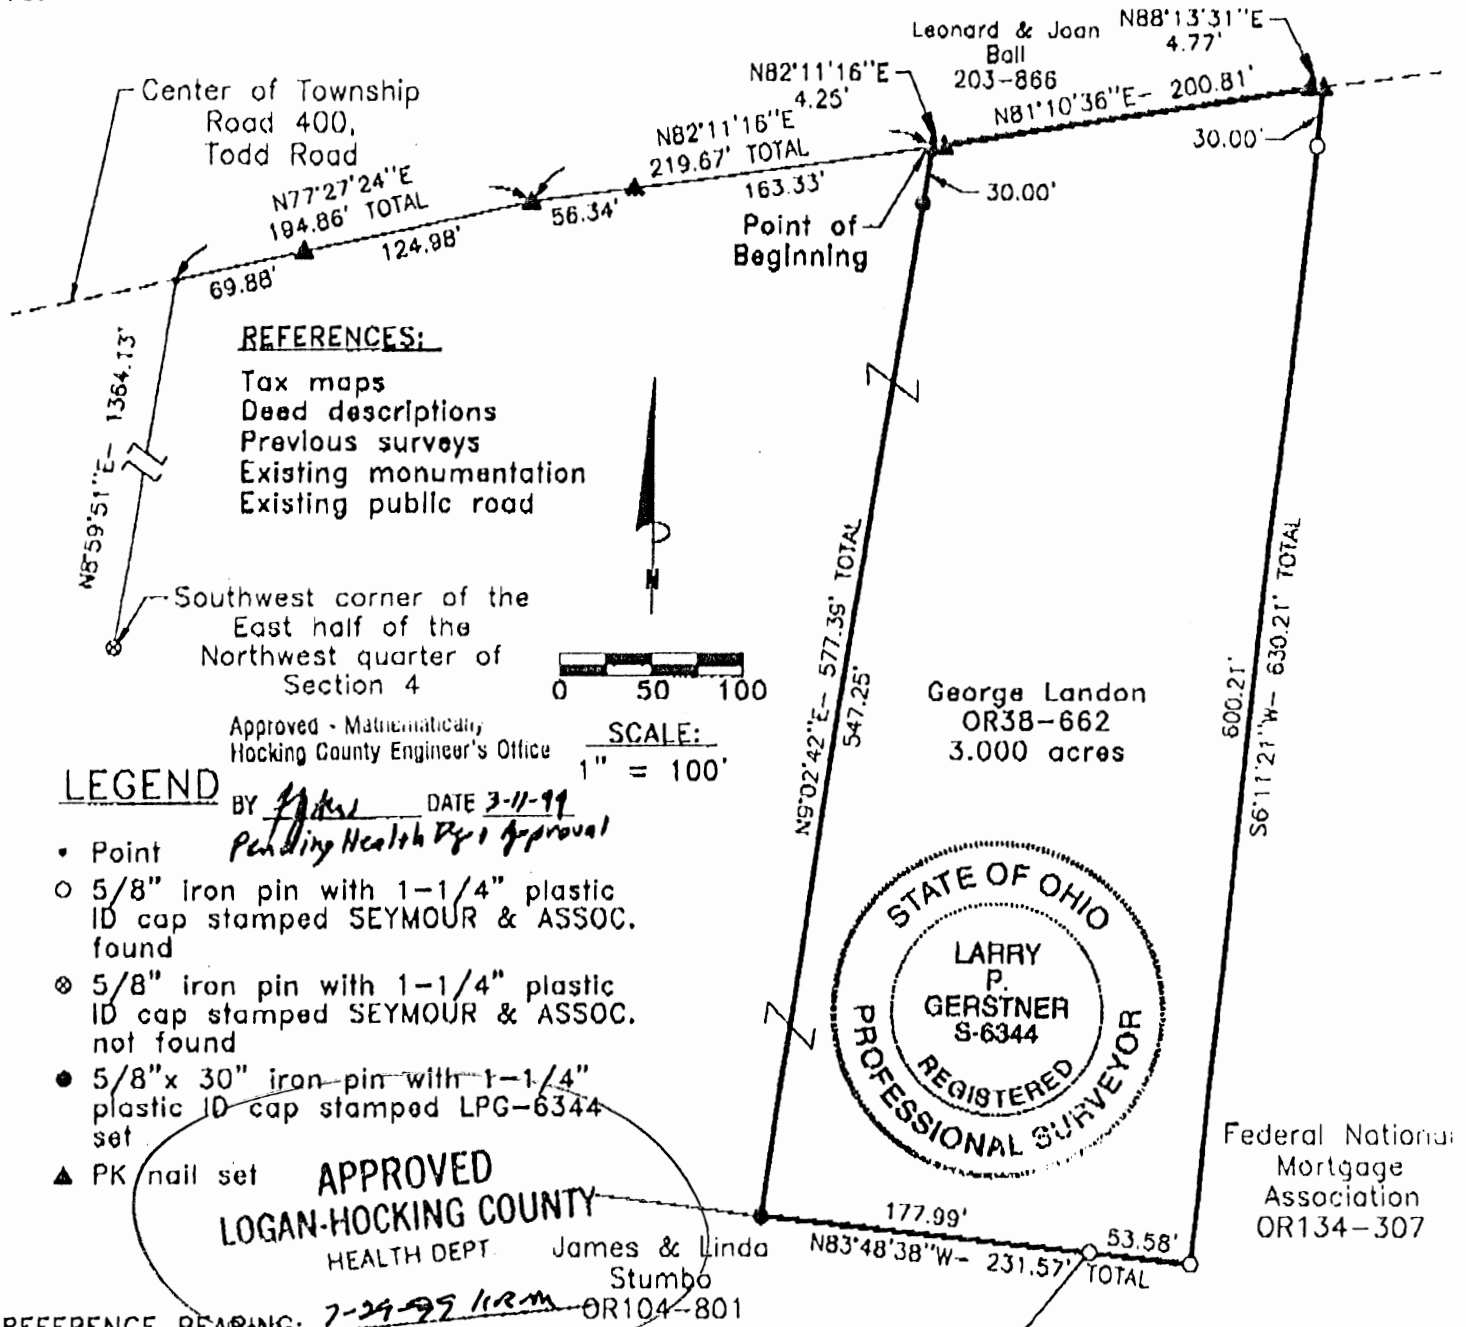 N88°13'31"E
4.77'
Leonard & Joan
Ball
203-866
N82°11'16"E
4.25'
N81°10'36"E- 200.81'
30.00'
Center of Township
Road 400,
Todd Road
N82°11'16"E
219.67' TOTAL
163.33'
56.34'
N77°27'24"E
194.86' TOTAL
124.98'
69.88'
30.00'
Point of
Beginning
N8°59'51"E- 1364.13'
REFERENCES:
Tax maps
Deed descriptions
Previous surveys
Existing monumentation
Existing public road
N
Southwest corner of the
East half of the
Northwest quarter of
Section 4
0 50 100
SCALE:
1" = 100'
Approved - Mathematically
Hocking County Engineer's Office
BY DATE 3-11-99
Pending Health Dept Approval
N9°02'42"E- 577.39' TOTAL
547.25'
George Landon
OR38-662
3.000 acres
600.21'
S6°11'21"W- 630.21' TOTAL
LEGEND
Point
5/8" iron pin with 1-1/4" plastic
ID cap stamped SEYMOUR & ASSOC.
found
5/8" iron pin with 1-1/4" plastic
ID cap stamped SEYMOUR & ASSOC.
not found
5/8"x 30" iron pin with 1-1/4"
plastic ID cap stamped LPG-6344
set
PK nail set
STATE OF OHIO
LARRY
P.
GERSTNER
S-6344
REGISTERED
PROFESSIONAL SURVEYOR
APPROVED
LOGAN-HOCKING COUNTY
HEALTH DEPT.
7-29-99
James & Linda
Stumbo
OR104-801
177.99'
53.58'
N83°48'38"W- 231.57' TOTAL
Federal National
Mortgage
Association
OR134-307
REFERENCE BEARING: